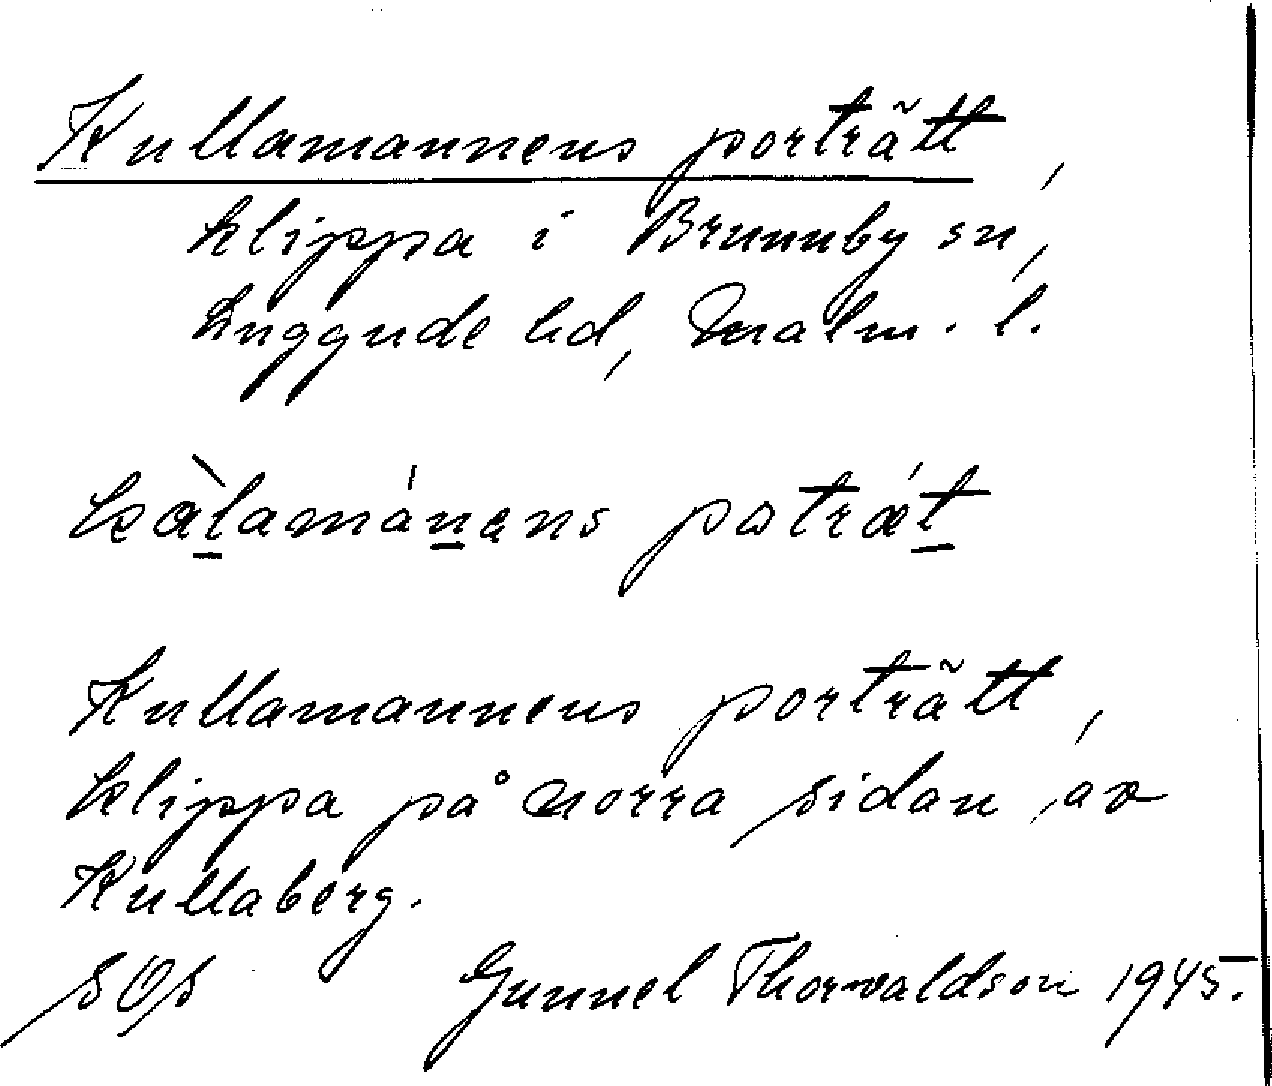 Kullamannens porträtt,
klippa i Brunnby sn,
Luggude hd, Malm. l.
porträtt
Kullamannens porträtt,
klippa på norra sidan av
Kullaberg.
SOS Gunnel Thorvaldson 1945.